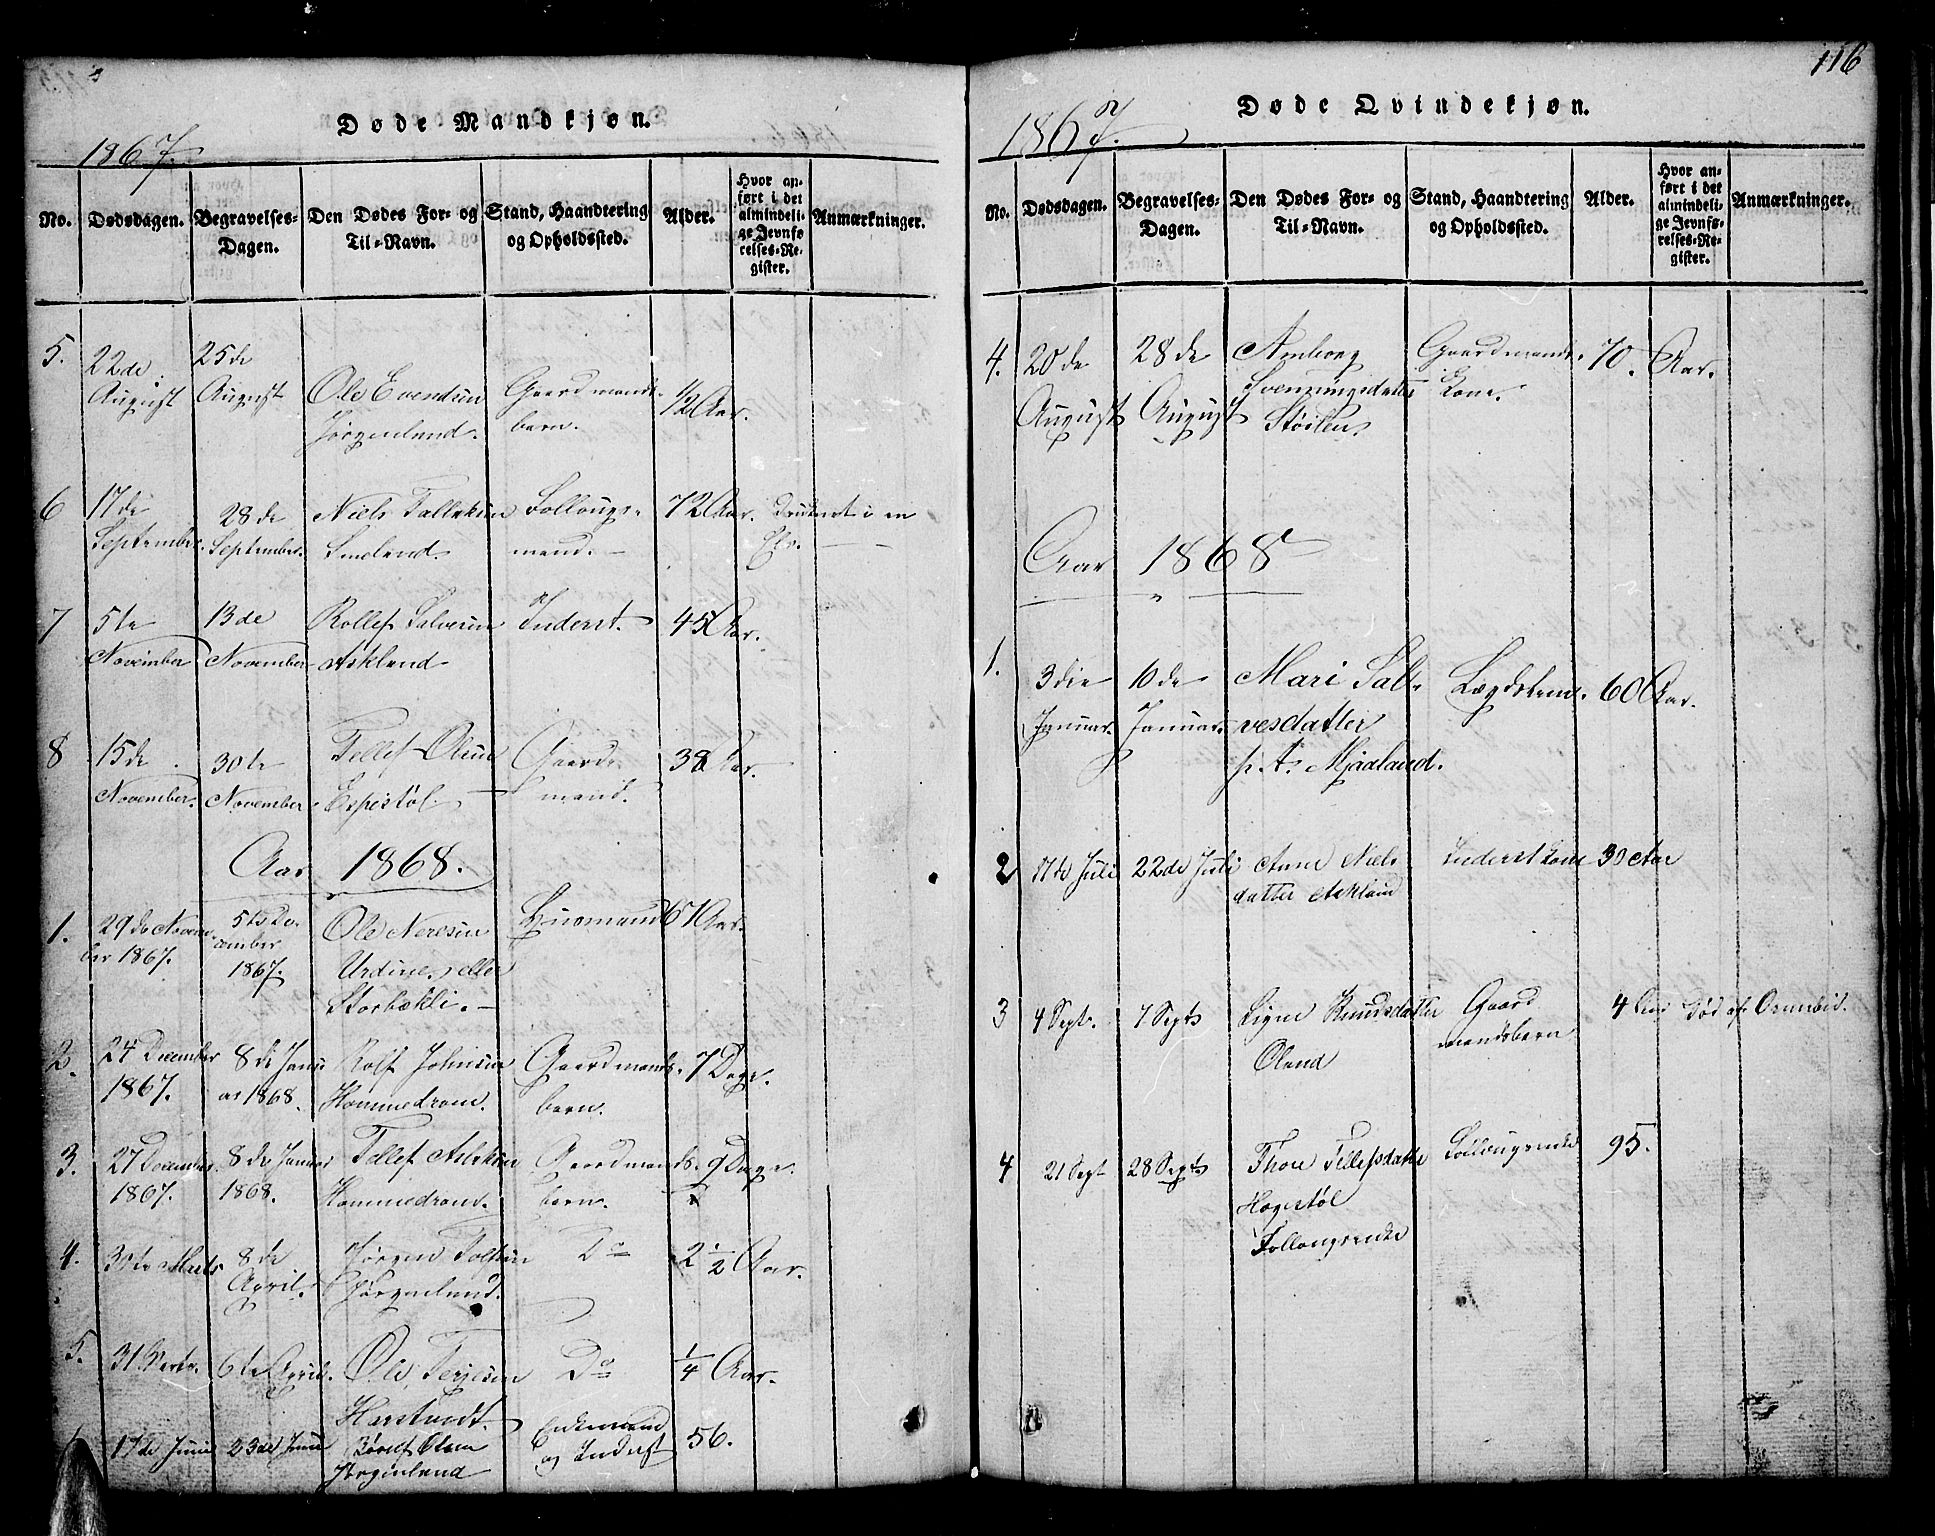 116
Døde Mandkjøn.
1867.
No. Dødsdagen. Begravelses-Dagen. Den Dødes For- og Til-Navn. Stand, Haandtering og Opholdssted. Alder. Hvor anført i det almindelige Jevnførelses-Register. Anmærkninger.
5. 22de August 25de August Ole Evensen Jørgenland. Gaardmands-barn. 1/2 Aar.
6 17de September 28de September. Niels Smeland. Follaugs-mand. 72 Aar. Druknet i en Elv.
7 5te November 13de November Rollef Salvesen Askland Inderst. 45 Aar.
8 15de November. 30te November Tellef Olsen Espestøl. Gaard-mand. 38 Aar.
Aar 1868.
1. 29de November 1867. 5te December 1867. Ole Neresen Urdine eller Storbækli. Huusmand 67 Aar.
2. 24 December 1867. 8de Januar 1868. Rolf Johnsen Hommedrom. Gaardmands-barn. 7 Dage.
3. 27 December 1867. 8de Januar 1868. Tellef Aslaksen Hommedrom. Gaardmands-barn. 9 Dage.
4. 30te Marts 8de April. Jørgen Jørgenland. Do 2 1/2 Aar.
5. 31 Marts. 6te April. Ole Terjesen Harstvedt. Do 1/4 Aar.
17de Juni 23de Juni Børut Olsen Jørgenland Enkemand og Inderst 56.
Døde Qvindekjøn.
1867.
No. Dødsdagen. Begravelses-Dagen. Den Dødes For- og Til-Navn. Stand, Haandtering og Opholdssted. Alder. Hvor anført i det almindelige Jevnførelses-Register. Anmærkninger.
4. 20de August 28de August Anborg Svenningsdatter Støilen Gaardmands-kone. 70. Aar.
Aar 1868
1. 3die Januar. 10de Januar. Mari Salvesdatter p. A. Mjaaland. Lægdslem. 60 Aar.
2 17de Juli 22de Juli Anne Nielsdatter Askland Inderstkone 30 Aar
3 4 Sept. 7 Septr Signe Knudsdatter Øland Gaardmandsbarn 4 Aar Død af Ormebid.
4 21 Sept 28 Septr Thore Tellefsdatter Hægestøl Follaugsenke Follaugsenke 95.